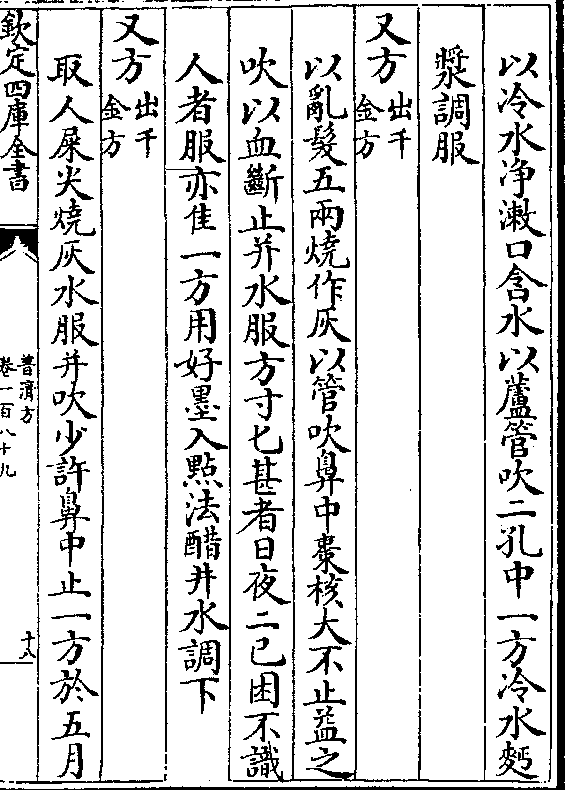 以冷水净漱口含水以蘆管吹二孔中一方冷水麫
漿調服
又方出千金方
以亂髮五兩燒作灰以管吹鼻中棗核大不止益之
吹以血斷止并水服方寸匕甚者日夜二已困不識
人者服亦佳一方用好墨入點法醋井水調下
又方出千金方
取人屎尖燒灰水服并吹少許鼻中止一方於五月
欽定四庫全書
普濟方
卷一百八十九
十八